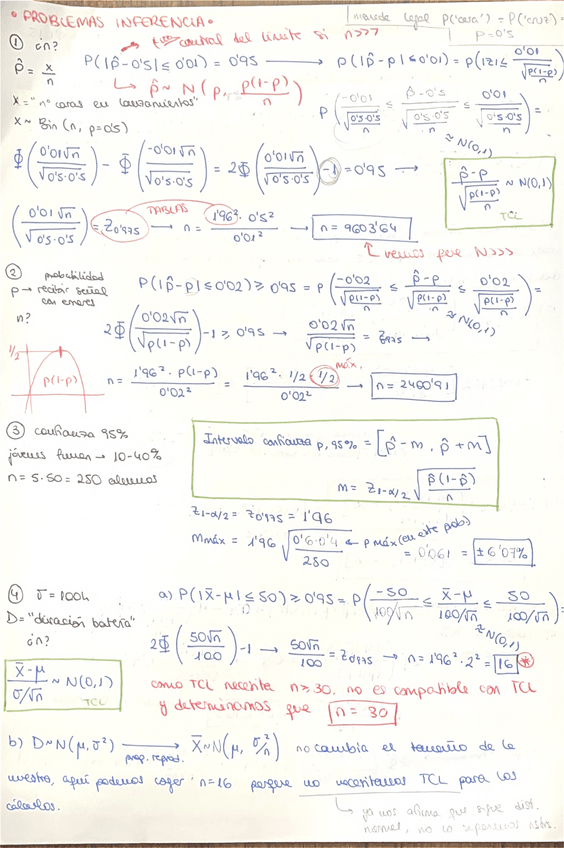 • PROBLEMAS INFERENCIA •
moneda legal P("cara") = P("cruz") =
p=0'5
① ¿n?
→ tma central del límite si n>>>
p̂ = x/n
P(|p̂-0'5| ≤ 0'01) = 0'95 → P(|p̂-p| ≤ 0'01) = P(|z| ≤ 0'01/√(p(1-p)/n)
↳ p̂ ~ N(p, p(1-p)/n)
X = "nº caras en lanzamientos"
X ~ Bin (n, p=0'5)
P(-0'01/√(0'5·0'5/n) ≤ p̂-0'5/√(0'5·0'5/n) ≤ 0'01/√(0'5·0'5/n)) =
≈ N(0,1)
Φ(0'01√n/√(0'5·0'5)) - Φ(-0'01√n/√(0'5·0'5)) = 2Φ(0'01√n/√(0'5·0'5)) -1 = 0'95 →
p̂-p/√(p(1-p)/n) ~ N(0,1)
TCL
(0'01√n/√(0'5·0'5)) = Z0'975 → TABLAS → n = 1'96²·0'5²/0'01² → n = 9603'64
↑ vemos que N>>>
② probabilidad
p → recibir señal
con errores
n?
P(|p̂-p| ≤ 0'02) ≥ 0'95 = P(-0'02/√(p(1-p)/n) ≤ p̂-p/√(p(1-p)/n) ≤ 0'02/√(p(1-p)/n)) =
≈ N(0,1)
2Φ(0'02√n/√(p(1-p))) -1 ≥ 0'95 → 0'02√n/√(p(1-p)) = Z0'975 →
1/2
p(1-p)
máx.
n = 1'96²·p(1-p)/0'02² = 1'96²·1/2·1/2/0'02² → n = 2400'91
③ confianza 95%
jóvenes fuman → 10-40%
n = 5·50 = 250 alumnos
Intervalo confianza p, 95% = [p̂ - m, p̂ + m]
m = Z1-α/2 √(p̂(1-p̂)/n)
Z1-α/2 = Z0'975 = 1'96
Mmáx = 1'96 √(0'6·0'4/250) ← p máx (en este prob) = 0'061 = ±6'07%
④ σ = 100h
D = "duración batería"
¿n?
X̄-μ/σ/√n ~ N(0,1)
TCL
a) P(|X̄-μ| ≤ 50) ≥ 0'95 = P(-50/100/√n ≤ X̄-μ/100/√n ≤ 50/100/√n) =
≈ N(0,1)
2Φ(50√n/100) -1 → 50√n/100 = Z0'975 → n = 1'96²·2² = 16 *
como TCL necesita n≥30, no es compatible con TCL
y determinamos que n = 30
b) D~N(μ, σ²) → prop. reprod. X̄~N(μ, σ²/n) no cambia el tamaño de la
muestra, aquí podemos coger n=16 porque no necesitamos TCL para los
cálculos.
↳ ya nos afirma que sigue dist.
normal, no lo suponemos nstrs.